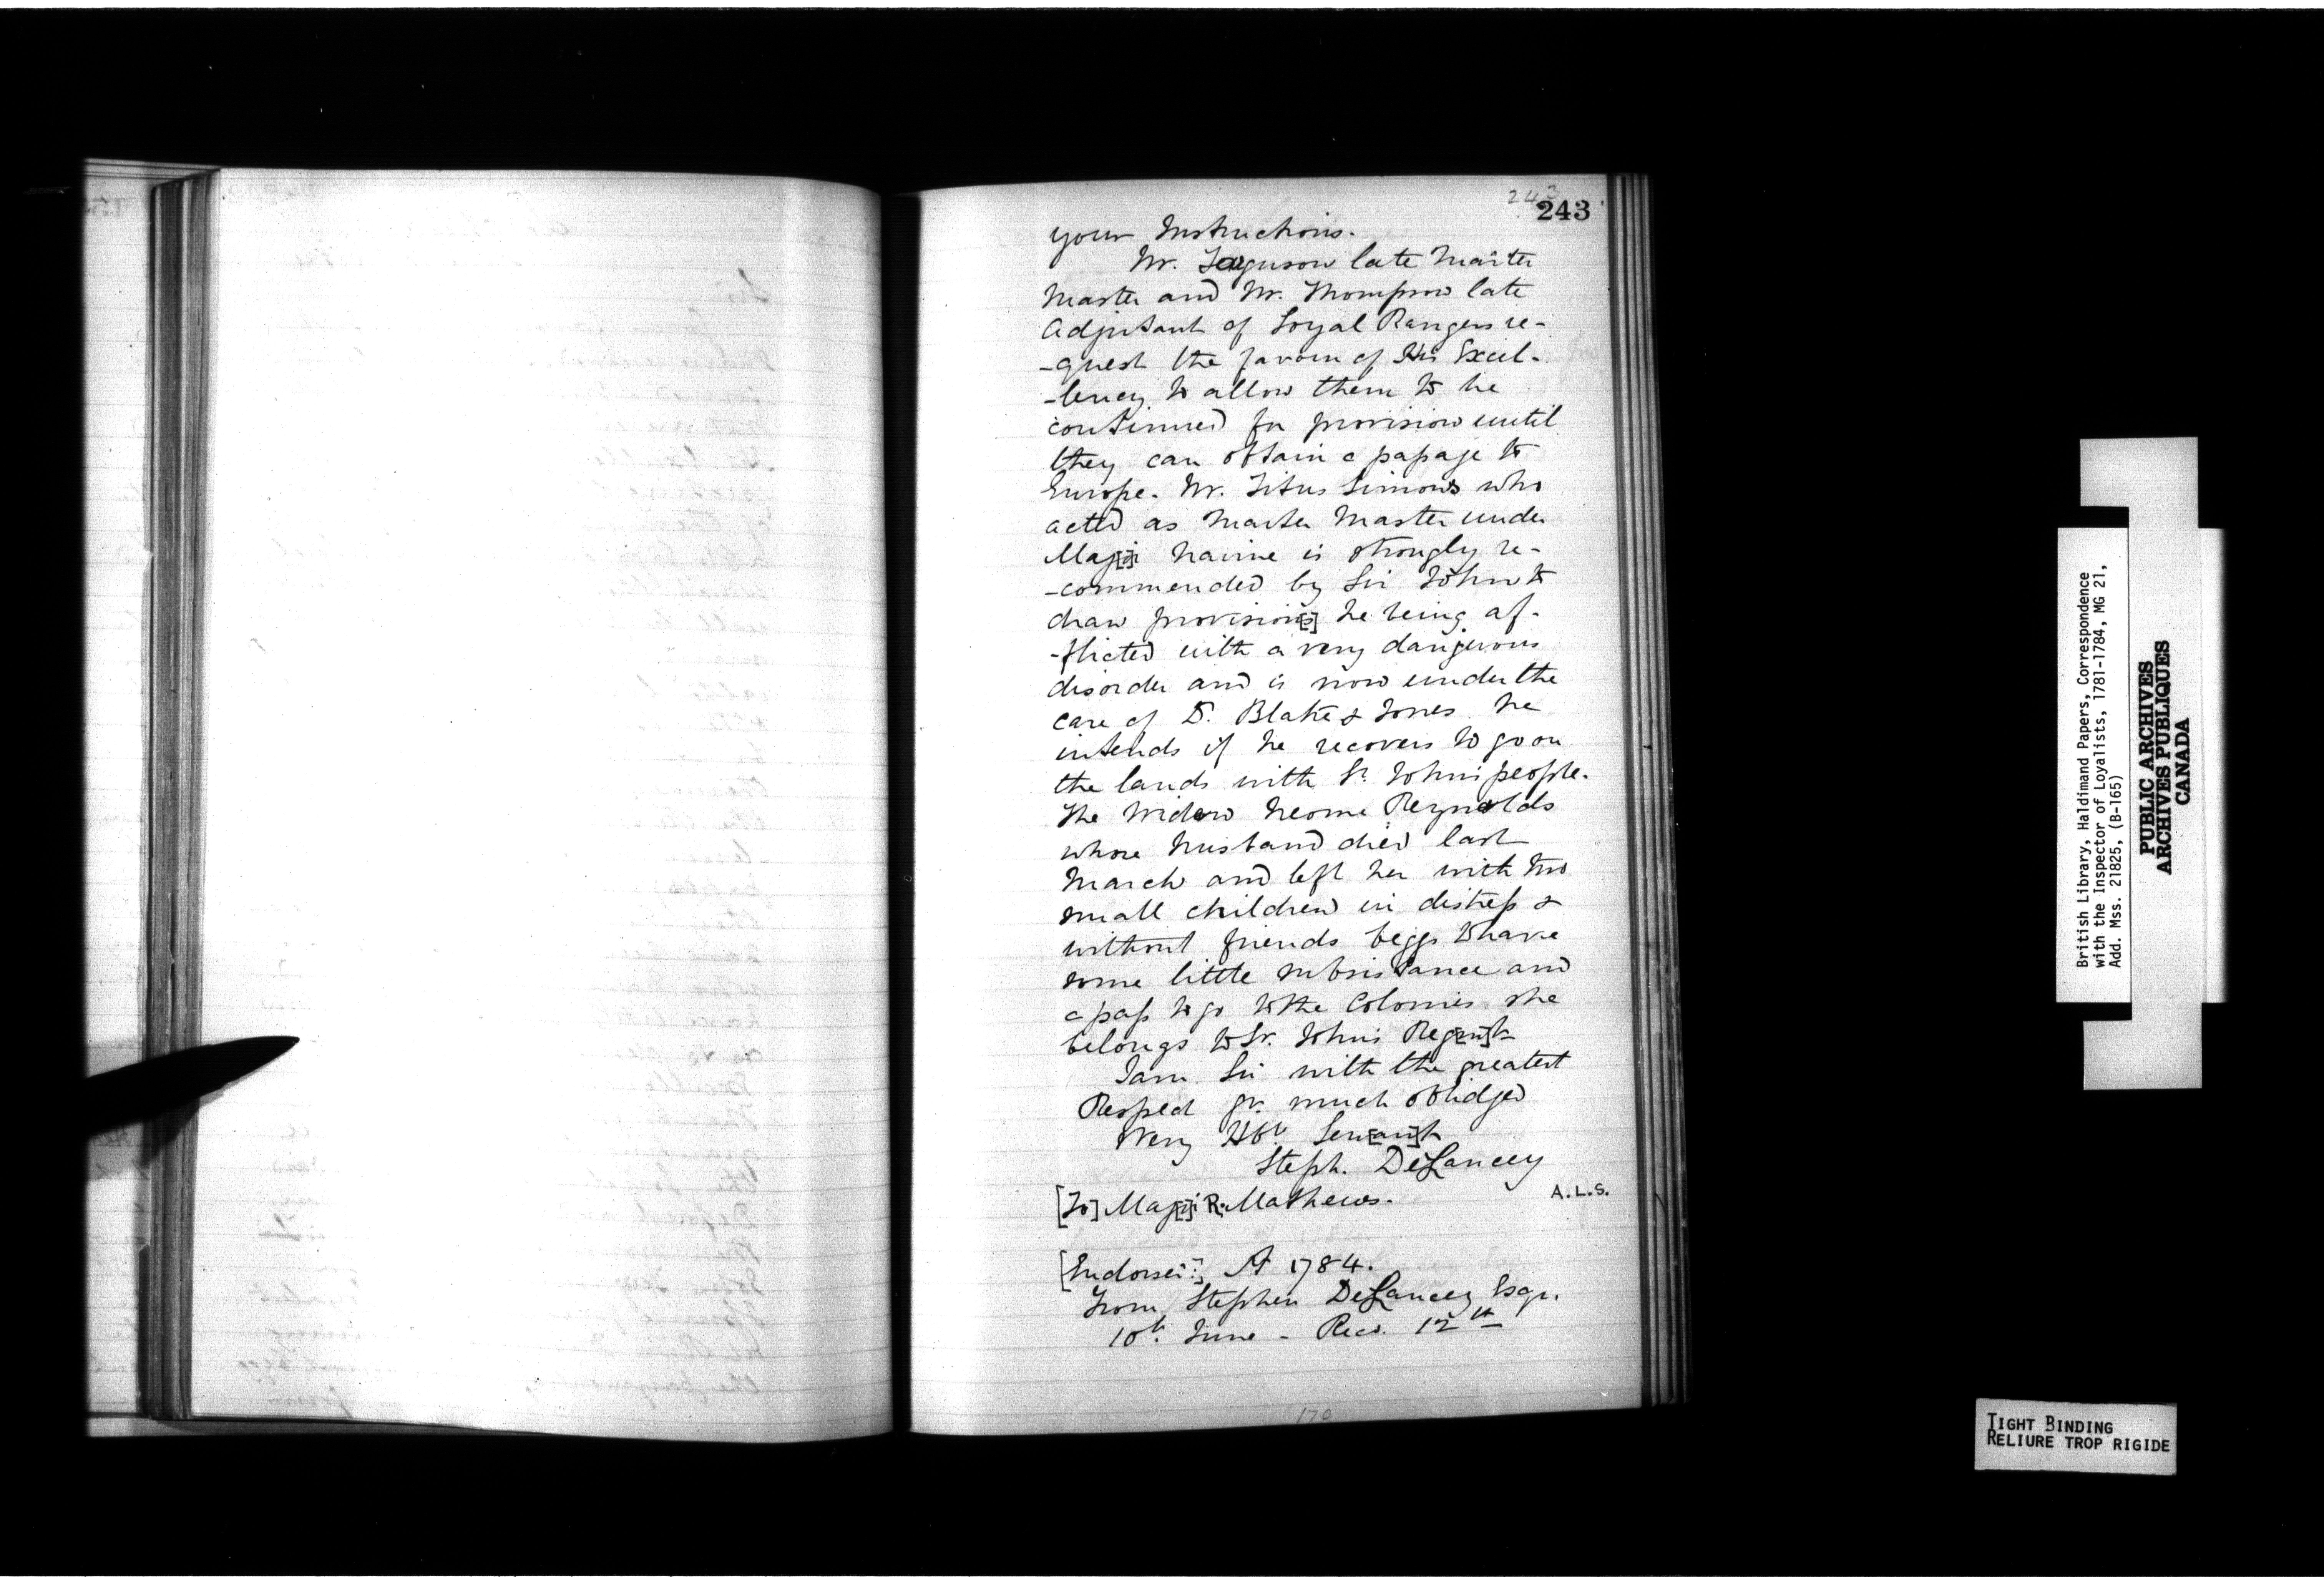 243
243
your Instructions.
Mr. Ferguson late Master
Master and Mr. Thompson late
Adjutant of Loyal Rangers re-
-quest the favour of His Excel-
-lency to allow them to be
continued for provision until
they can obtain a passage to
Europe. Mr. Titus Simons who
acted as Master Master under
Maj[o]r Nairne is strongly re-
-commended by Sir John to
draw provision[s] he being af-
-flicted with a very dangerous
disorder and is now under the
care of D. Blake & Jones he
intends if he recovers to go on
the lands with Sr. Johns people.
The Widow Neome Reynolds
whose husband died last
March and left her with two
small children in distress &
without friends beggs to have
some little subsistance and
a pass to go to the Colonies she
belongs to Sr. Johns Reg[men]t
I am Sir with the greatest
Respect yr. much oblidged
Very Hble Serv[an]t
Steph. DeLancey
[To] Maj[o]r R. Mathews.
A.L.S.
[Endorsed:] A 1784.
From Stephen DeLancey Esqr.
10th. June - Recd. 12th
170
British Library, Haldimand Papers, Correspondence
with the Inspector of Loyalists, 1781-1784, MG 21,
Add. Mss. 21825, (B-165)
PUBLIC ARCHIVES
ARCHIVES PUBLIQUES
CANADA
TIGHT BINDING
RELIURE TROP RIGIDE